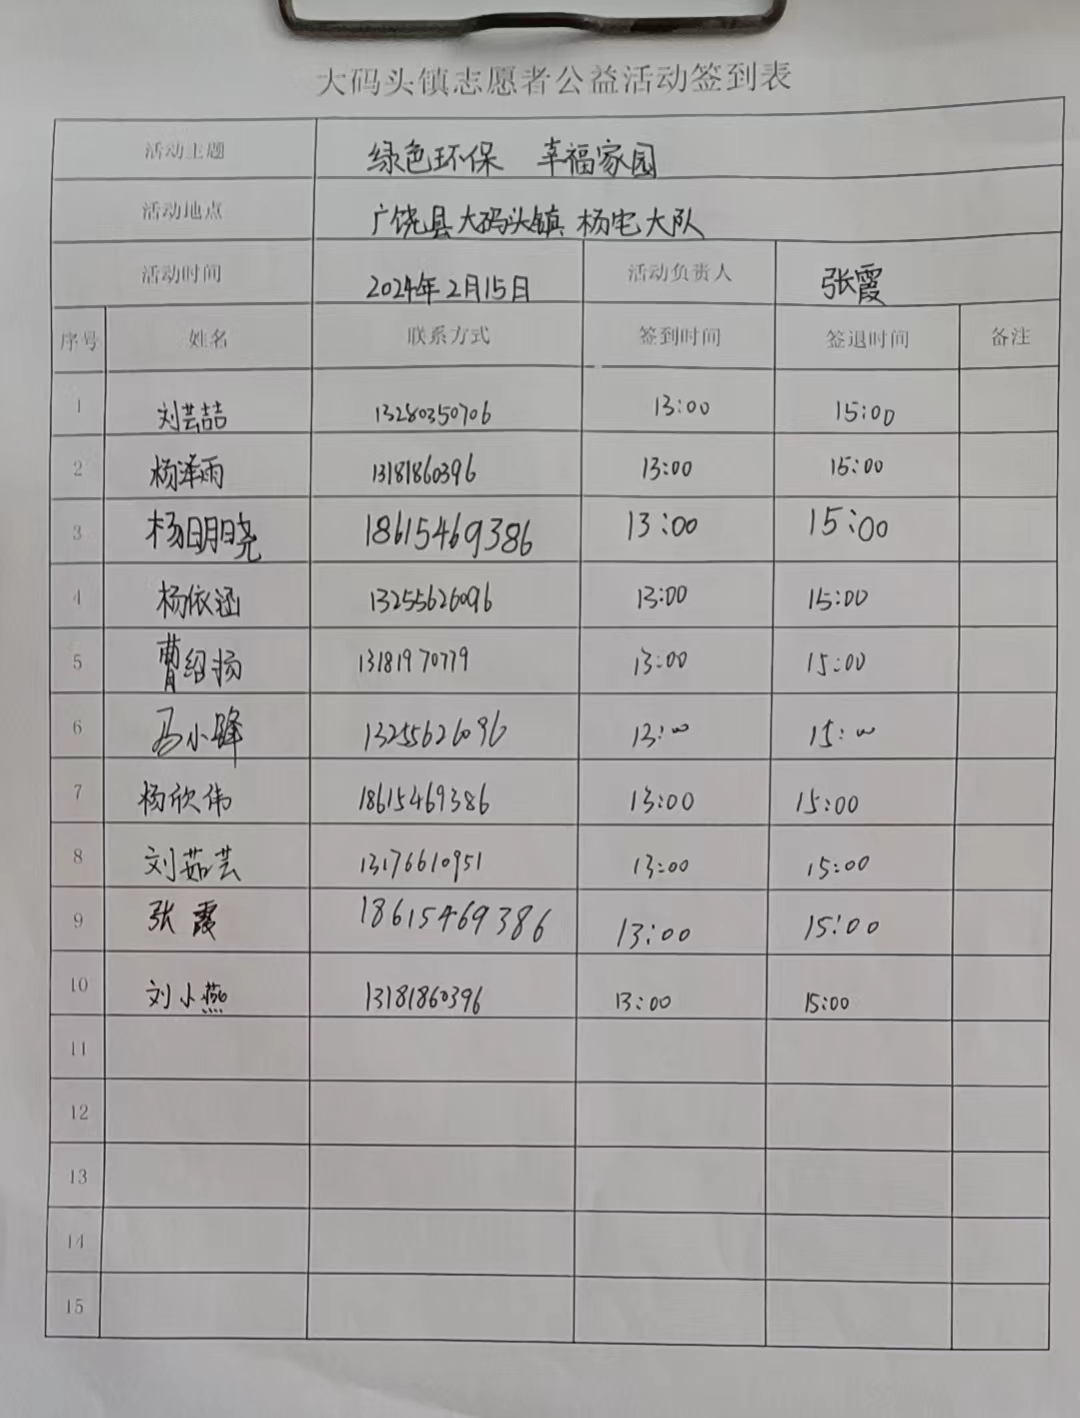 大码头镇志愿者公益活动签到表
活动主题 绿色环保 幸福家园
活动地点 广饶县大码头镇 杨屯大队
活动时间 2024年2月15日 活动负责人 张霞
序号 姓名 联系方式 签到时间 签退时间 备注
1 刘芸喆 13280350706 13:00 15:00
2 杨泽雨 13181860396 13:00 15:00
3 杨明晓 18615469386 13:00 15:00
4 杨依涵 13255626096 13:00 15:00
5 曹绍扬 13181970779 13:00 15:00
6 马小峰 13255626096 13:00 15:00
7 杨欣伟 18615469386 13:00 15:00
8 刘茹芸 13176610951 13:00 15:00
9 张霞 18615469386 13:00 15:00
10 刘小燕 13181860396 13:00 15:00
11
12
13
14
15